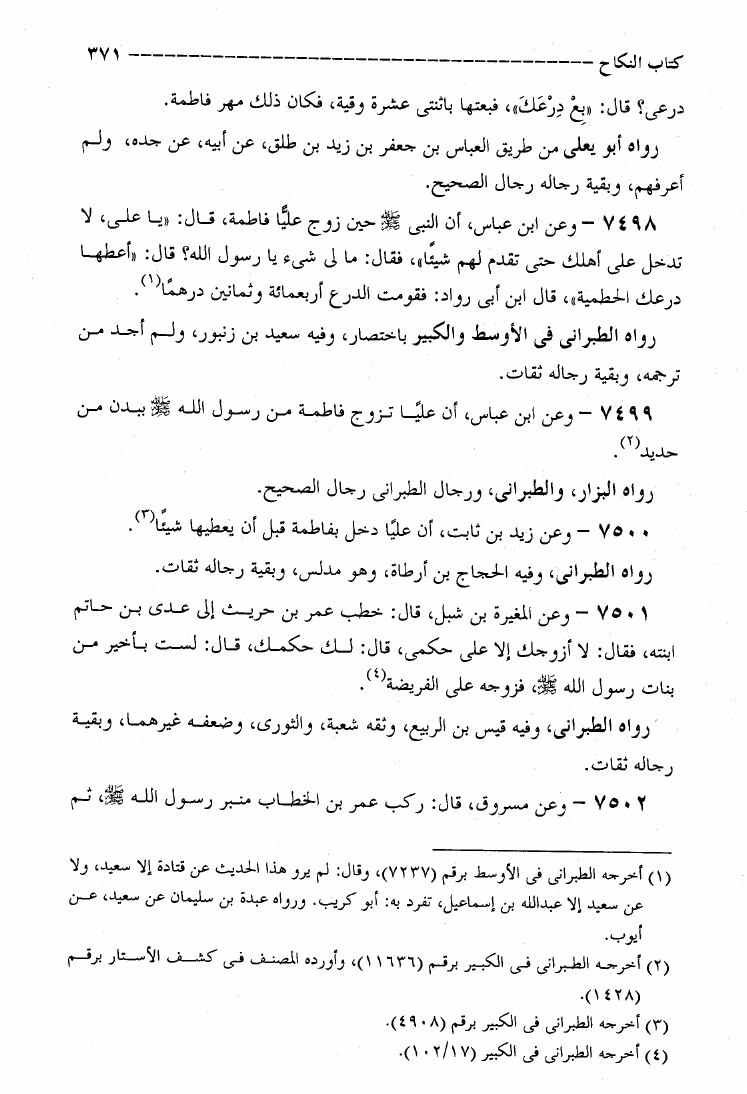 كتاب النكاح ---------------------------------------- ٣٧١
درعى؟ قال: «بِعْ دِرْعَكَ»، فبعتها باثنتى عشرة وقية، فكان ذلك مهر فاطمة.
رواه أبو يعلى من طريق العباس بن جعفر بن زيد بن طلق، عن أبيه، عن جده، ولم
أعرفهم، وبقية رجاله رجال الصحيح.
٧٤٩٨ – وعن ابن عباس، أن النبى ﷺ حين زوج عليًّا فاطمة، قال: «يا على، لا
تدخل على أهلك حتى تقدم لهم شيئًا»، فقال: ما لى شىء يا رسول الله؟ قال: «أعطها
درعك الحطمية»، قال ابن أبى رواد: فقومت الدرع أربعمائة وثمانين درهمًا(١).
رواه الطبرانى فى الأوسط والكبير باختصار، وفيه سعيد بن زنبور، ولم أجد من
ترجمه، وبقية رجاله ثقات.
٧٤٩٩ – وعن ابن عباس، أن عليًّا تزوج فاطمة من رسول الله ﷺ ببدن من
حديد(٢).
رواه البزار، والطبرانى، ورجال الطبرانى رجال الصحيح.
٧٥٠٠ – وعن زيد بن ثابت، أن عليًا دخل بفاطمة قبل أن يعطيها شيئًا(٣).
رواه الطبرانى، وفيه الحجاج بن أرطاة، وهو مدلس، وبقية رجاله ثقات.
٧٥٠١ – وعن المغيرة بن شبل، قال: خطب عمر بن حريث إلى عدى بن حاتم
ابنته، فقال: لا أزوجك إلا على حكمى، قال: لك حكمك، قال: لست بأخير من
بنات رسول الله ﷺ، فزوجه على الفريضة(٤).
رواه الطبرانى، وفيه قيس بن الربيع، وثقه شعبة، والثورى، وضعفه غيرهما، وبقية
رجاله ثقات.
٧٥٠٢ – وعن مسروق، قال: ركب عمر بن الخطاب منبر رسول الله ﷺ، ثم
(١) أخرجه الطبرانى فى الأوسط برقم (٧٢٣٧)، وقال: لم يرو هذا الحديث عن قتادة إلا سعيد، ولا
عن سعيد إلا عبدالله بن إسماعيل، تفرد به: أبو كريب. ورواه عبدة بن سليمان عن سعيد، عن
أيوب.
(٢) أخرجه الطبرانى فى الكبير برقم (١١٦٣٦)، وأورده المصنف فى كشف الأستار برقم
(١٤٢٨).
(٣) أخرجه الطبرانى فى الكبير برقم (٤٩٠٨).
(٤) أخرجه الطبرانى فى الكبير (١٠٢/١٧).